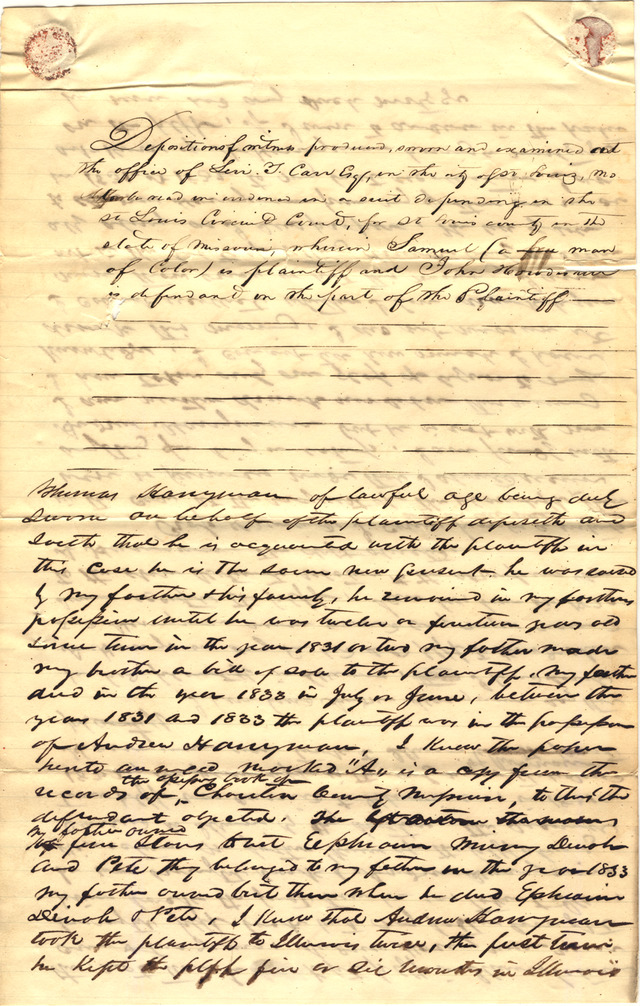 Depositions of witness produced, sworn and examined at
the office of Levi T. Carr Esq, in the city of St Louis, Mo
to be read in evidence in a suit depending in the
St Louis Circuit Court, for St Louis county in the
state of Missouri, wherein Samuel (a free man
of Color) is plaintiff and John
is defendant on the part of the Plaintiff
Thomas Harryman of lawful age being duly
sworn on behalf of the plaintiff deposeth and
saith that he is acquainted with the plaintiff in
this case he is the same now present he was raised
by my father & his family, he remained in my fathers
possession until he was twelve or fourteen years old
some time in the year 1831 or two my father made
my brother a bill of sale to the plaintiff. My father
died in the year 1833 in July or June, between the
years 1831 and 1833 the plaintiff was in the possession
of Andrew Harryman, I know the paper
hereto annexed marked "A", is a copy from the
the office book of
records of County Missouri, to this the
defendant objected. The
my father owned
five slaves to wit Eephraim Dinah
and Pete they belonged to my father in the year 1833
my father owned but three when he died Ephraim
Dinah & Pete, I know that Andrew Harryman
took the plaintiff to Illinois twice, the first time
he kept the plff five or six months in Illinois